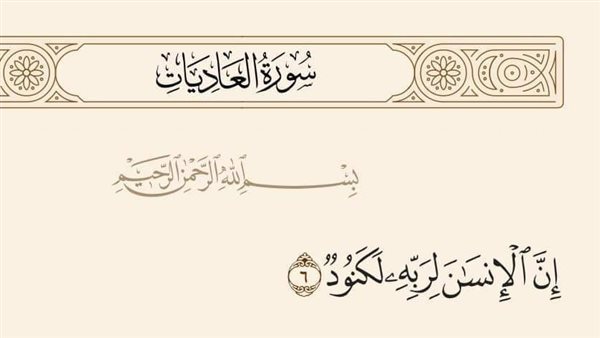 سُورَةُ العَادِيَاتِ
بِسْمِ ٱللَّهِ ٱلرَّحْمَٰنِ ٱلرَّحِيمِ
إِنَّ ٱلْإِنسَٰنَ لِرَبِّهِۦ لَكَنُودٌ ٦